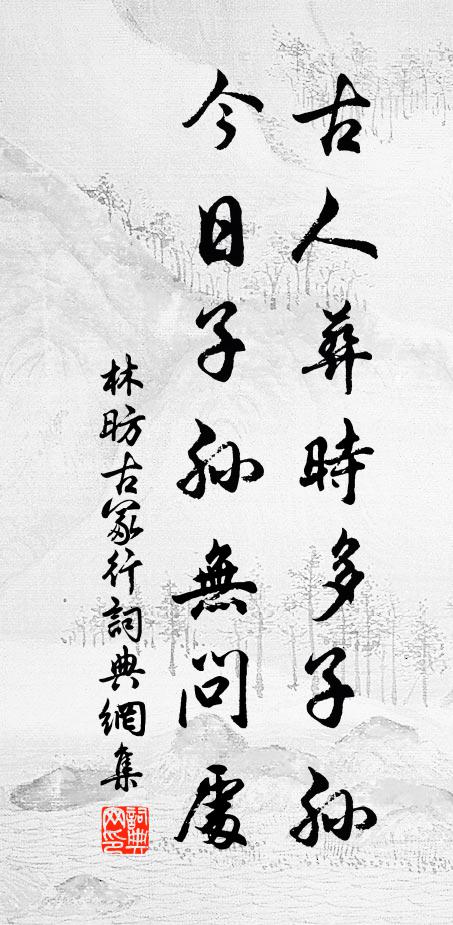 古人葬時多子孫
今日子孫無問處
林昉古冢行詞典網集
詞典網印